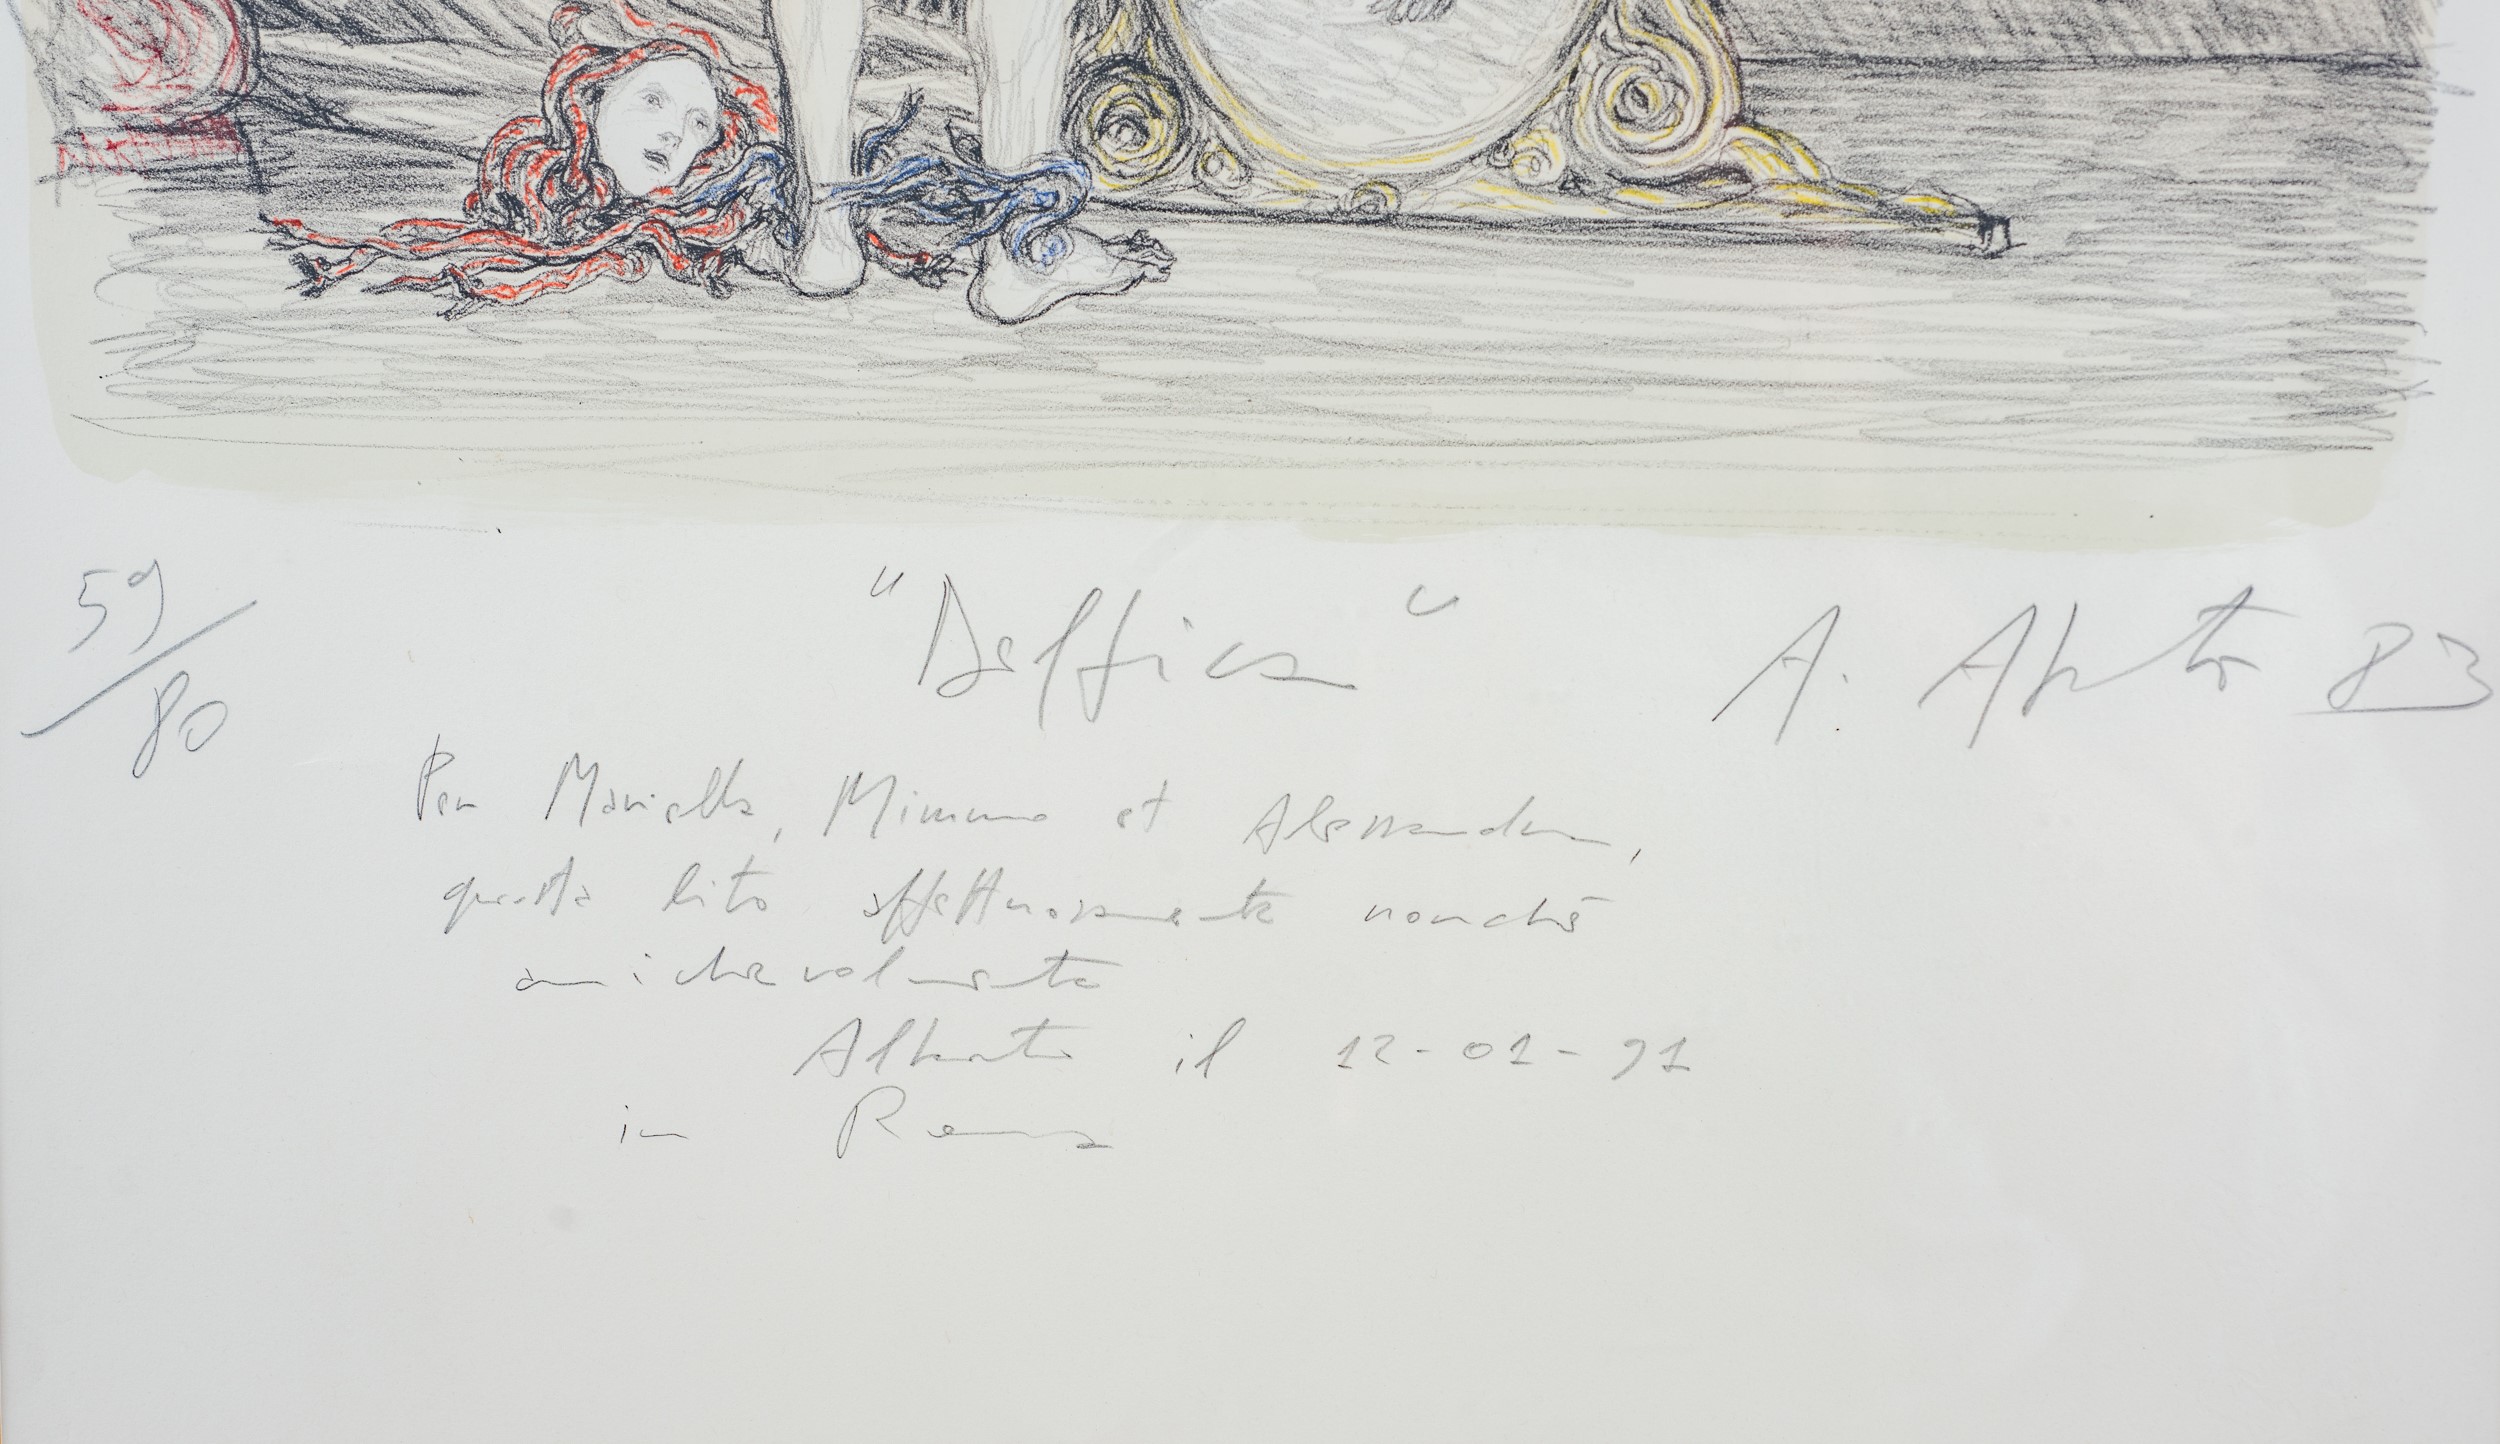 59/80
"Delfica"
A. Abate 83
Per Mariella, Mimmo et Alessandra,
questa lito affettuosamente nonché
amichevolmente
Alberto il 12-01-91
in Roma